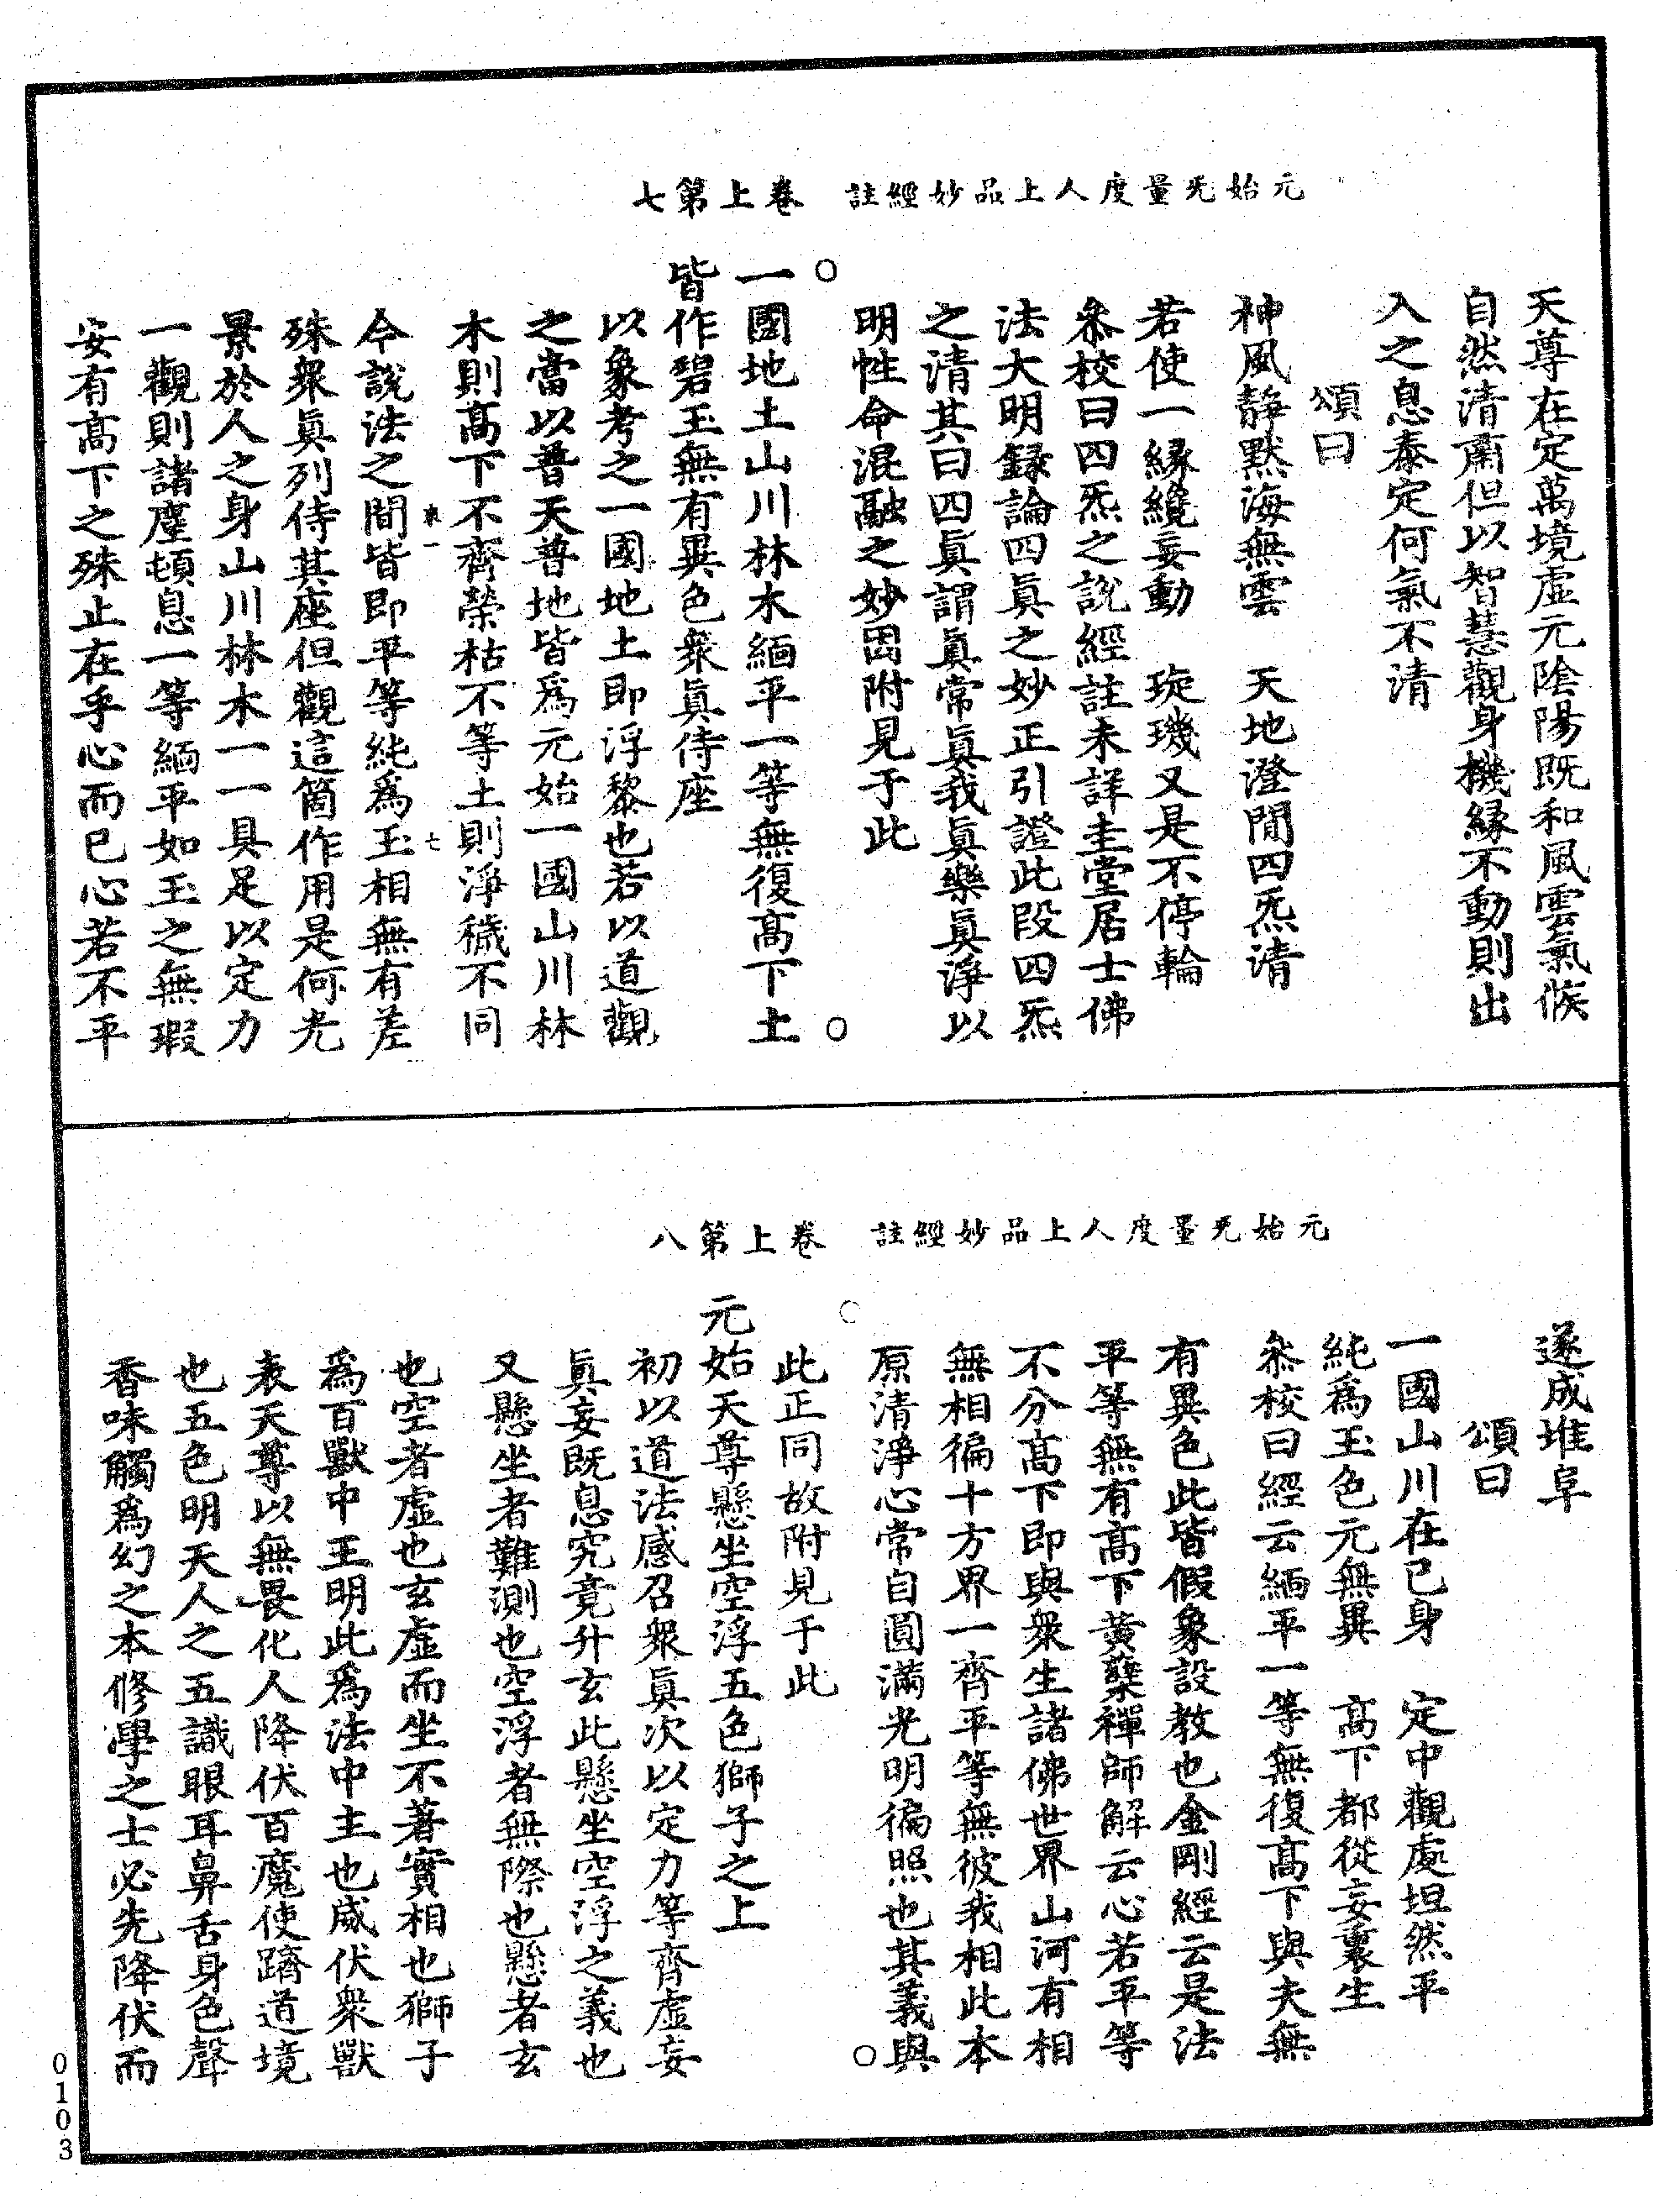 元始旡量度人上品妙經註　卷上第七
天尊在定萬境虛元陰陽既和風雲氣候
自然清肅但以智慧觀身機緣不動則出
入之息泰定何氣不清
頌曰
神風静默海無雲　天地澄閒四炁清
若使一緣纔妄動　琁璣又是不停輪
叅校曰四炁之說經註未詳圭堂居士佛
法大明録論四眞之妙正引證此段四炁
之清其曰四眞謂眞常眞我眞樂眞淨以
明性命混融之妙因附見于此
一國地土山川林木緬平一等無復髙下土
皆作碧玉無有異色衆眞侍座
以象考之一國地土即浮黎也若以道觀
之當以普天普地皆爲元始一國山川林
木則髙下不齊榮枯不等土則淨穢不同
今說法之間皆即平等純爲玉相無有差
殊衆眞列侍其座但觀這箇作用是何光
景於人之身山川林木一一具足以定力
一觀則諸塵頓息一等緬平如玉之無瑕
安有髙下之殊止在乎心而已心若不平
元始旡量度人上品妙經註　卷上第八
遂成堆阜
頌曰
一國山川在已身　定中觀處坦然平
純爲玉色元無異　髙下都從妄裏生
叅校曰經云緬平一等無復髙下與夫無
有異色此皆假象設教也金剛經云是法
平等無有髙下黄蘗禪師解云心若平等
不分髙下即與衆生諸佛世界山河有相
無相徧十方界一齊平等無彼我相此本
原清淨心常自圓滿光明徧照也其義與
此正同故附見于此
元始天尊懸坐空浮五色獅子之上
初以道法感召衆眞次以定力等齊虛妄
眞妄既息究竟升玄此懸坐空浮之義也
又懸坐者難測也空浮者無際也懸者玄
也空者虛也玄虛而坐不著實相也獅子
爲百獸中王明此爲法中主也威伏衆獸
表天尊以無畏化人降伏百魔使躋道境
也五色明天人之五識眼耳鼻舌身色聲
香味觸爲幻之本修學之士必先降伏而
0103